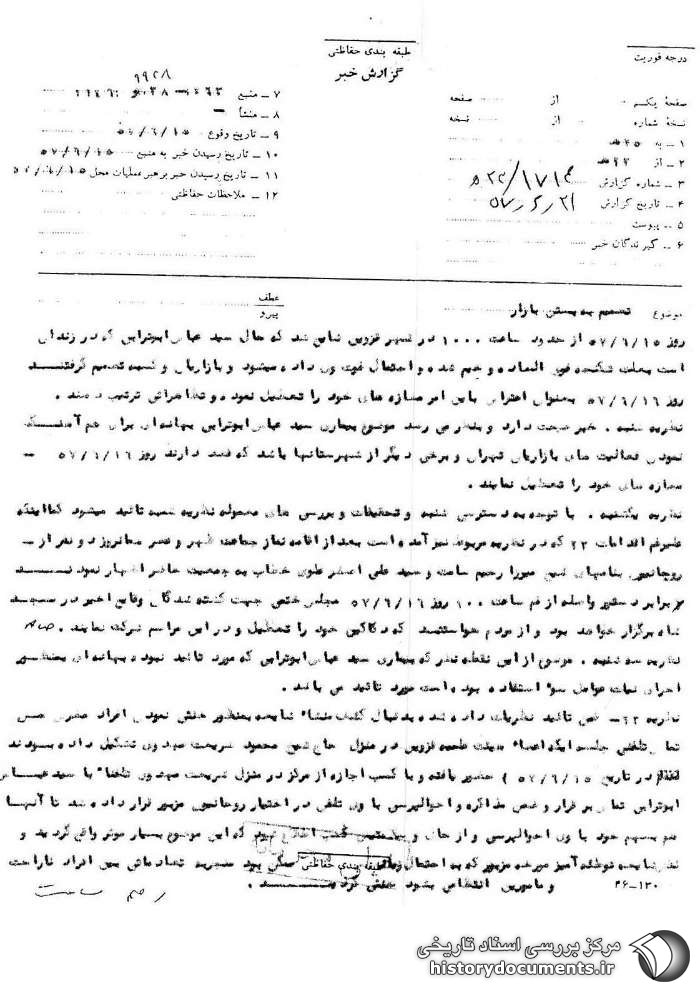 طبقه بندی حفاظتی
گزارش خبر
درجه فوریت
صفحهٔ یکم از صفحه
نسخهٔ شماره از نسخه
۱ ـ به
۲ ـ از
۳ ـ شماره گزارش ۱۷۱۴/
۴ ـ تاریخ گزارش
۵ ـ پیوست
۶ ـ گیرندگان خبر
۹۹۲۸
۷ ـ منبع
۸ ـ منشأ ـ
۹ ـ تاریخ وقوع ۵۷/۶/۱۵
۱۰ ـ تاریخ رسیدن خبر به منبع ۵۷/۶/۱۵
۱۱ ـ تاریخ رسیدن خبر برهبر عملیات محل ۵۷/۶/۱۵
۱۲ ـ ملاحظات حفاظتی
عطف
پیرو
موضوع تصمیم به بستن بازار
روز ۵۷/۶/۱۵ از حدود ساعت ۱۰۰۰ در شهر قزوین شایع شد که حال سید عباس ابوترابی که در زندان
است بعلت شکنجه فوق العاده وخیم شده و احتمال فوت وی داده میشود و بازاریان و کسبه تصمیم گرفتند
روز ۵۷/۶/۱۶ بعنوان اعتراض باین امر مغازه های خود را تعطیل نموده و تظاهراتی ترتیب دهند .
نظریه شنبه . خبر صحت دارد و بنظر می رسد موضوع بیماری سید عباس ابوترابی بهانه ای برای هم آهنگ
نمودن فعالیت های بازاریان تهران و برخی دیگر از شهرستانها باشد که قصد دارند روز ۵۷/۶/۱۶
مغازه های خود را تعطیل نمایند .
نظریه یکشنبه . با توجه به دسترسی شنبه و تحقیقات و بررسی های معموله نظریه شنبه تائید میشود کمااینکه
علیرغم اقدامات ۲۲ که در نظریه مربوط نیز آمده است بعد از اقامه نماز جماعت ظهر و عصر همانروز دو نفر از
روحانیون بنامهای شیخ میرزا رحیم سامت و سید علی اصغر علوی خطاب به جمعیت حاضر اظهار نمودند
بر برابر دستور واصله از قم ساعت روز ۵۷/۶/۱۶ مجلس ختمی جهت کشته شدگان وقایع اخیر در مسجد
شاه برگزار خواهد بود و از مردم خواستند که دکاکین خود را تعطیل و در این مراسم شرکت نمایند .
نظریه سه شنبه . موضوع از این نقطه نظر که بیماری سید عباس ابوترابی که مورد تائید نبوده بهانه ای بمنظور
اجرای نیات عوامل سوء استفاده بوده است مورد تائید می باشد .
نظریه ۲۲ـ ضمن تائید نظریات داده شده بدنبال کشف منشاء شایعه بمنظور خنثی نمودن افراد مغرض ضمن
تماس تلفنی جلسه ایکه اعضاء هیئت علمیه قزوین در منزل حاج شیخ محمود شریعت مهدوی تشکیل داده بودند
در تاریخ ۵۷/۶/۱۵ ) حضور یافته و با کسب اجازه از مرکز در منزل شریعت مهدوی تلفناً با سید عباس
ابوترابی تماس بر قرار و ضمن مذاکره و احوالپرسی با وی تلفن در اختیار روحانیون مزبور قرار داده شد تا آنها
هم بسهم خود با وی احوالپرسی و از حال و کسب اطلاع نمود که این موضوع بسیار موثر واقع گردید و
شایعه توطئه آمیز مورخه مزبور که به احتمال ممکن بود منجر به تصادماتی بین افراد ناراحت
و مامورین انتظامی بشود خنثی گردید .
طبقه بندی حفاظتی
۴۶-۱۳۰
رحیم سامت
مرکز بررسی اسناد تاریخی
historydocuments.ir